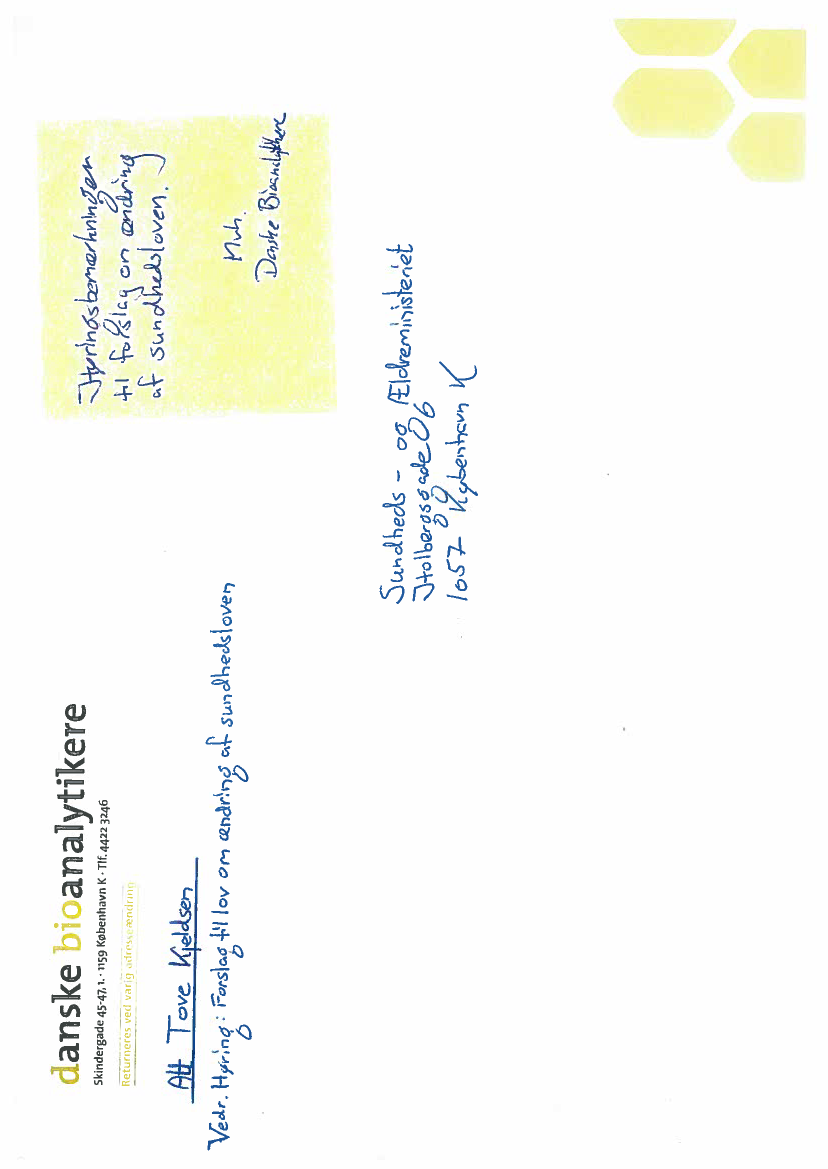 danske bioanalytikere
Skindergade 45-47, 1. · 1159 København K · Tlf. 4422 3246
Returneres ved varig adresseændring
Att Tove Kjeldsen
Vedr. Høring: Forslag til lov om ændring af sundhedsloven
Høringsbemærkningen
til forslag om ændring
af sundhedsloven.
Mvh.
Danske Bioanalytikere
Sundheds- og Ældreministeriet
Holbergsgade 6
1057 København K